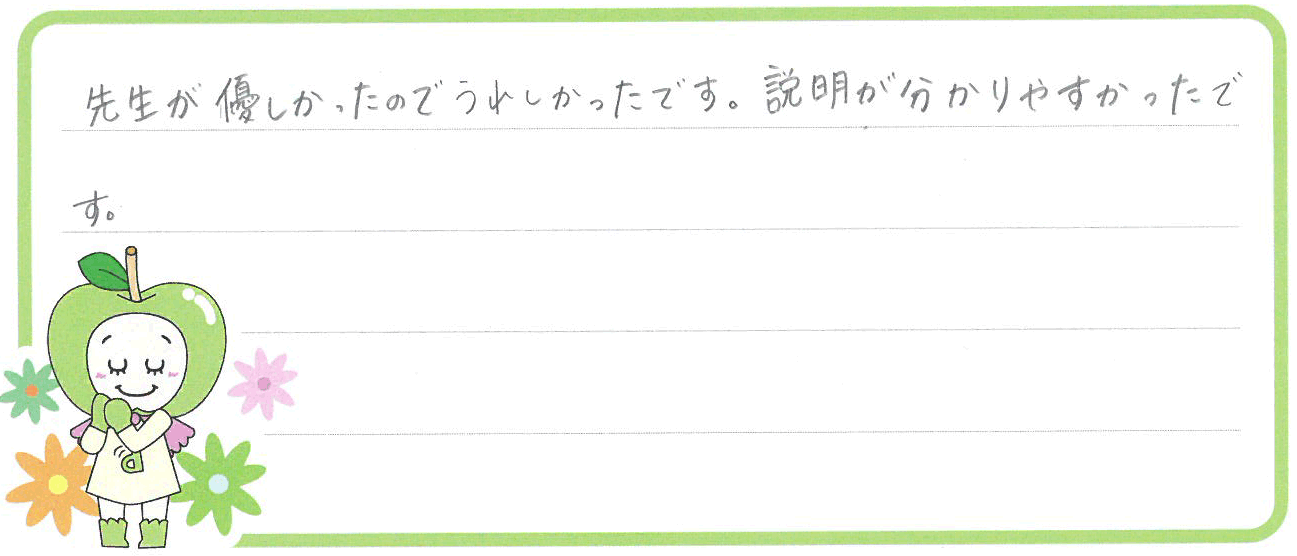 先生が優しかったのでうれしかったです。説明が分かりやすかったで
す。